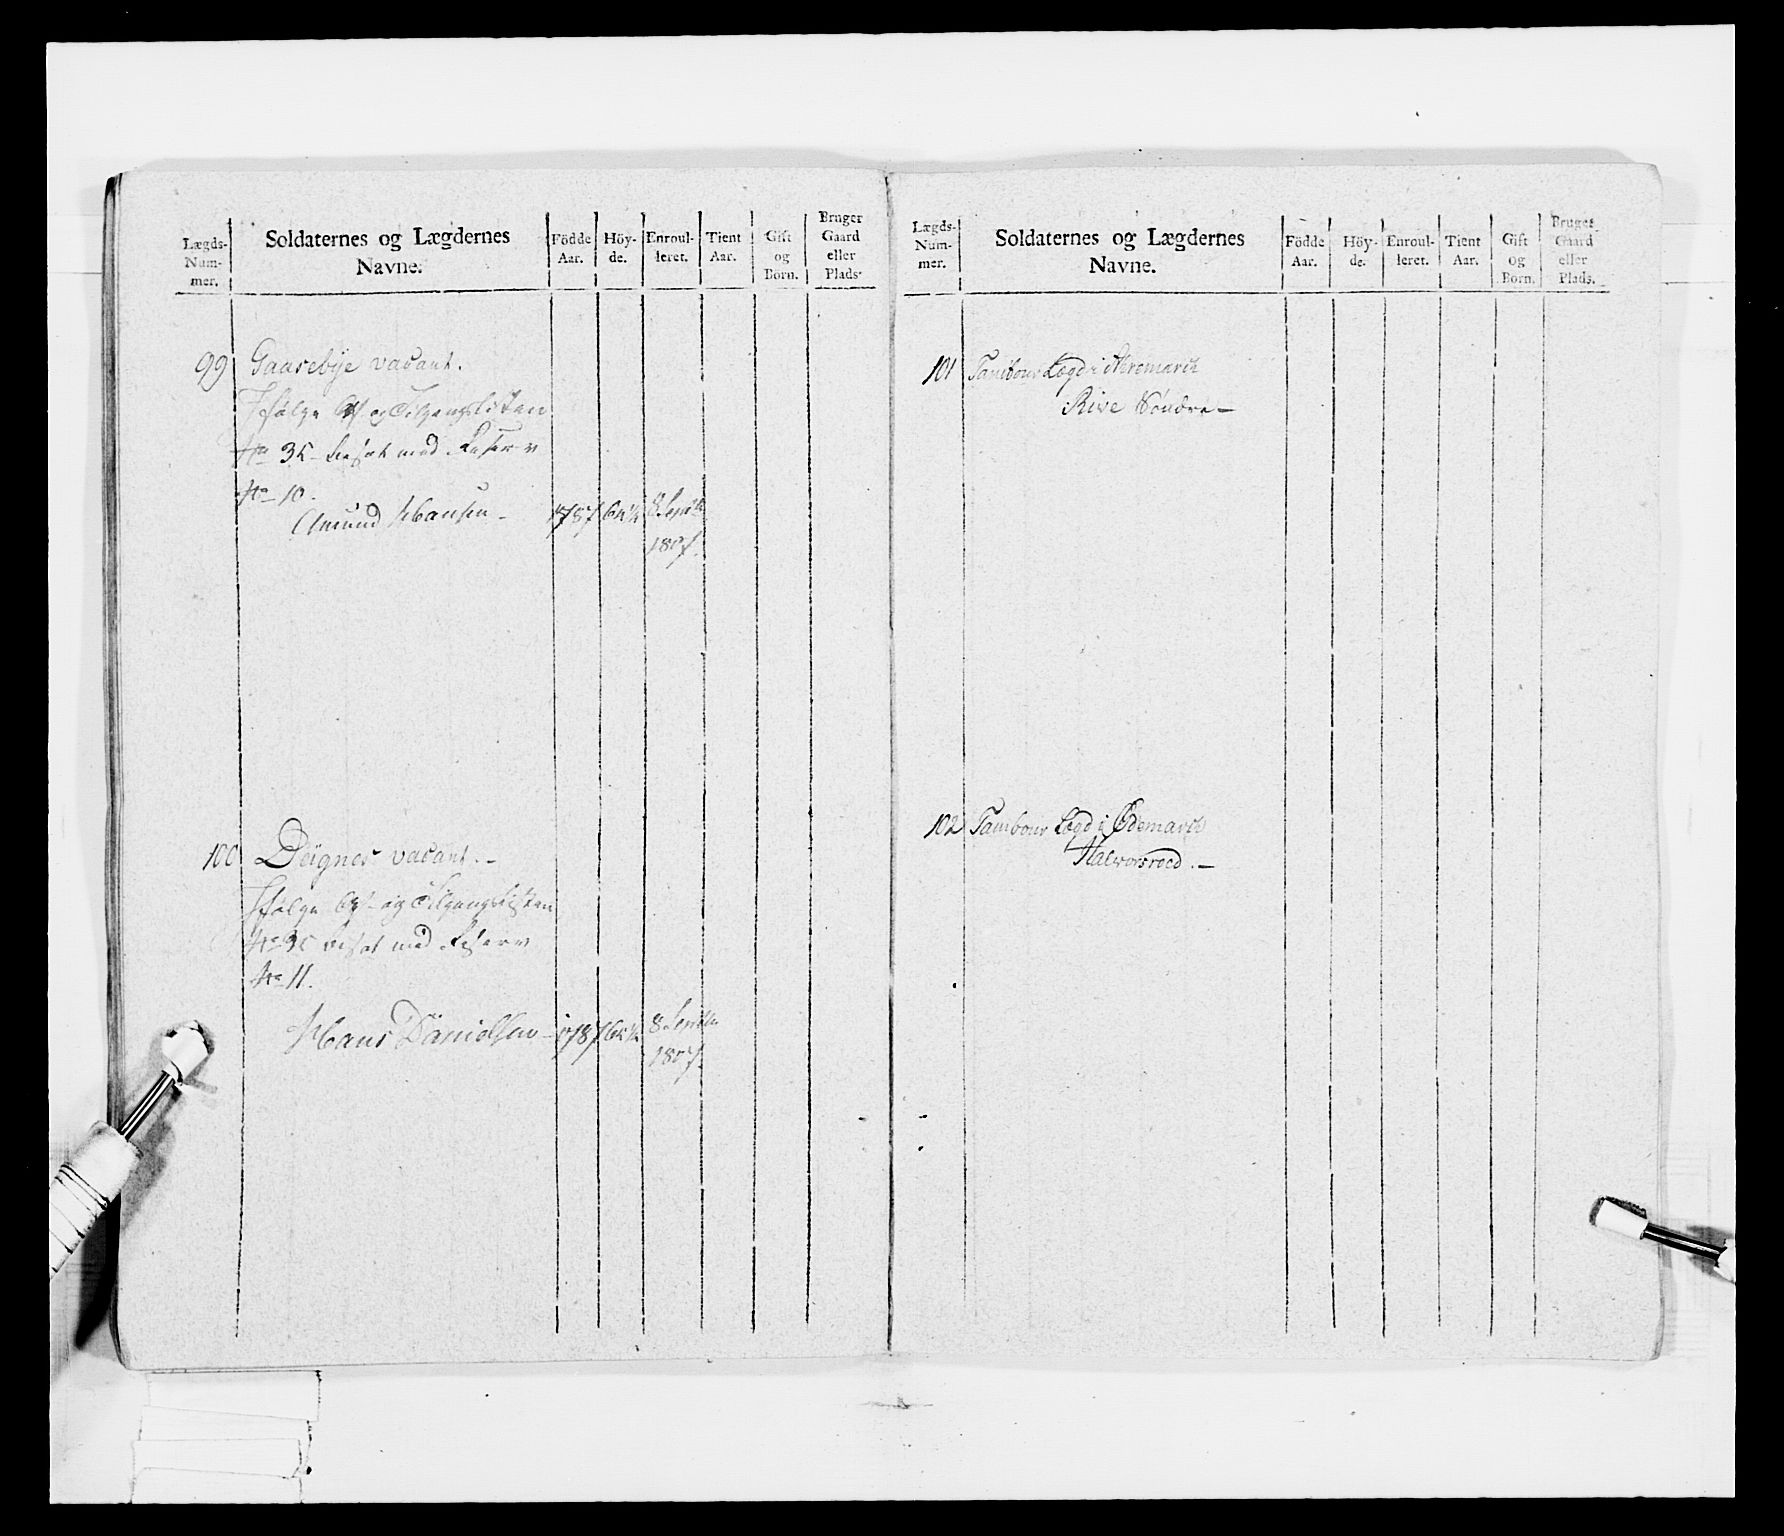 Lægds-
Num-
mer.
Soldaternes og Lægdernes
Navne.
Födde
Aar.
Höy-
de.
Enroul-
leret.
Tient
Aar.
Gift
og
Börn.
Bruger
Gaard
eller
Plads.
99 Gaarebye vacant.
Ifölge Af og Tilgangslisten
No 35 besat med Reserv
No 10.
Amund Hansen - 1787 8
1807.
100 vacant. -
Ifölge Af- og Tilgangslisten
No 35 besat med Reserv
No 11.
Hans Danielsen - 1787 8
1807.
Lægds-
Num-
mer.
Soldaternes og Lægdernes
Navne.
Födde
Aar.
Höy-
de.
Enroul-
leret.
Tient
Aar.
Gift
og
Börn.
Bruger
Gaard
eller
Plads.
101 Tambour Lægd i Aremarch
Rive Söndre -
102 Tambour Lægd i Ödemarch
Halvorsröed. -